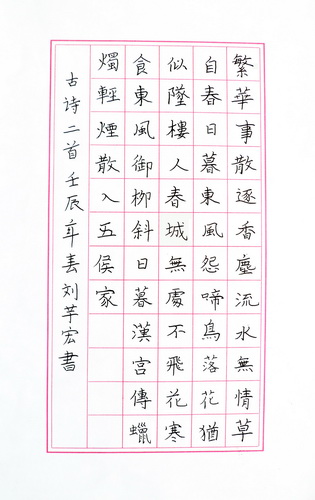 繁華事散逐香塵流水無情草
自春日暮東風怨啼鳥落花猶
似墜樓人春城無處不飛花寒
食東風御柳斜日暮漢宮傳蠟
燭輕煙散入五侯家
古诗二首壬辰年春刘宏書